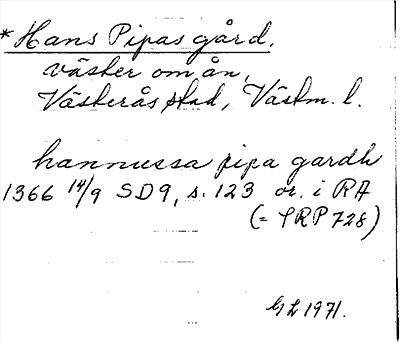 *Hans Pipas gård,
väster om ån,
Västerås stad, Västm. l.
hannussa pipa gardh
1366 14/9 SD9, s. 123 or. i RA
(= SRP 728)
GL 1971.